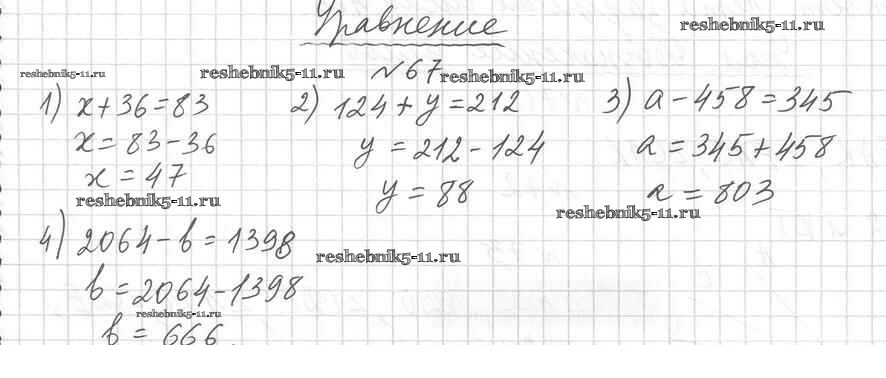 Уравнение
reshebnik5-11.ru
reshebnik5-11.ru
reshebnik5-11.ru
№67
reshebnik5-11.ru
1) x+36=83
x=83-36
x=47
2) 124+y=212
y=212-124
y=88
3) a-458=345
a=345+458
a=803
reshebnik5-11.ru
reshebnik5-11.ru
4) 2064-b=1398
b=2064-1398
b=666
reshebnik5-11.ru
reshebnik5-11.ru